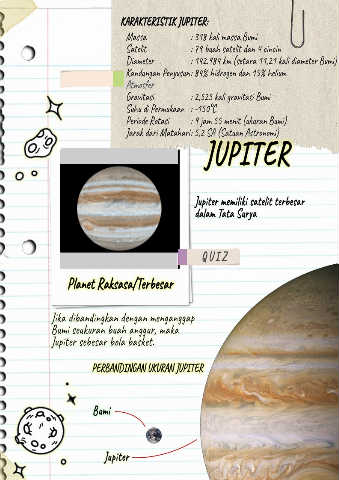 KARAKTERISTIK JUPITER:
Massa : 318 kali massa Bumi
Satelit : 79 buah satelit dan 4 cincin
Diameter : 142.984 km (setara 11,21 kali diameter Bumi)
Kandungan Penyusun : 84% hidrogen dan 15% helium
Atmosfer
Gravitasi : 2,525 kali gravitasi Bumi
Suhu di Permukaan : -150°
Periode Rotasi : 9 jam 55 menit (ukuran Bumi)
Jarak dari Matahari : 5,2 SA (Satuan Astronomi)
JUPITER
Jupiter memiliki satelit terbesar
dalam Tata Surya
QUIZ
Planet Raksasa/Terbesar
Jika dibandingkan dengan menganggap
Bumi seukuran buah anggur, maka
Jupiter sebesar bola basket.
PERBANDINGAN UKURAN JUPITER
Bumi
Jupiter